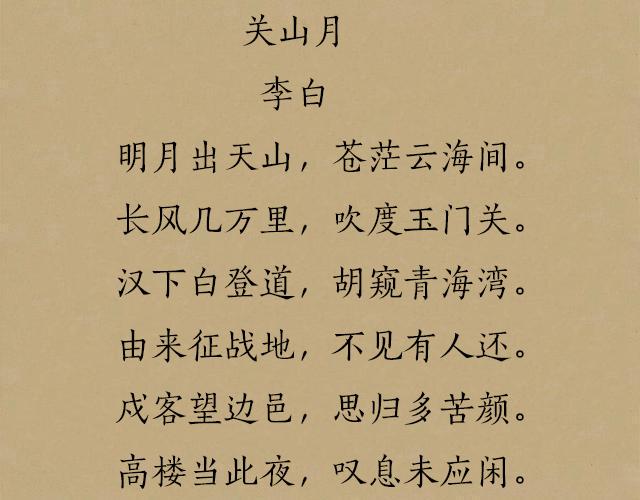 关山月
李白
明月出天山，苍茫云海间。
长风几万里，吹度玉门关。
汉下白登道，胡窥青海湾。
由来征战地，不见有人还。
戍客望边邑，思归多苦颜。
高楼当此夜，叹息未应闲。